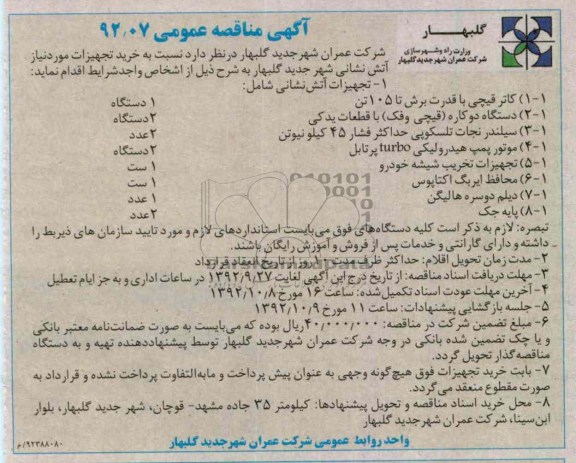 گلبهار
وزارت راه و شهرسازی
شرکت عمران شهر جدید گلبهار
آگهی مناقصه عمومی ۹۲،۰۷
شرکت عمران شهرجدید گلبهار در نظر دارد نسبت به خرید تجهیزات موردنیاز
آتش نشانی شهر جدید گلبهار به شرح ذیل از اشخاص واجدشرایط اقدام نماید:
۱- تجهیزات آتش‌نشانی شامل:
۱-۱) کاتر قیچی با قدرت برش تا ۱۰۵ تن ۱ دستگاه
۲-۱) دستگاه دو کاره (قیچی وفک) با قطعات یدکی ۲دستگاه
۳-۱) سیلندر نجات تلسکوپی حداکثر فشار ۴۵ کیلو نیوتن ۲عدد
۴-۱) موتور پمپ هیدرولیکی turbo پرتابل ۲دستگاه
۵-۱) تجهیزات تخریب شیشه خودرو ۱ ست
۶-۱) محافظ ایربگ اکتاپوس ۱ ست
۷-۱) دیلم دوسره هالیگن ۱ عدد
۸-۱) پایه جک ۲عدد
تبصره: لازم به ذکر است کلیه دستگاه‌های فوق می‌بایست استانداردهای لازم و مورد تایید سازمان های ذیربط را
داشته و دارای گارانتی و خدمات پس از فروش و آموزش رایگان باشند.
۲- مدت زمان تحویل اقلام: حداکثر ظرف مدت ۱۰ روز از تاریخ انعقاد قرارداد
۳- مهلت دریافت اسناد مناقصه: از تاریخ درج این آگهی لغایت ۱۳۹۲/۹/۲۷ در ساعات اداری و به جز ایام تعطیل
۴- آخرین مهلت عودت اسناد تکمیل‌شده: ساعت ۱۶ مورخ ۱۳۹۲/۱۰/۸
۵- جلسه بازگشایی پیشنهادات: ساعت ۱۱ مورخ ۱۳۹۲/۱۰/۹
۶- مبلغ تضمین شرکت در مناقصه: ۴۰،۰۰۰،۰۰۰ریال بوده که می‌بایست به صورت ضمانت‌نامه معتبر بانکی
و یا چک تضمین شده بانکی در وجه شرکت عمران شهرجدید گلبهار توسط پیشنهاددهنده تهیه و به دستگاه
مناقصه‌گذار تحویل گردد.
۷- بابت خرید تجهیزات فوق هیچ‌گونه وجهی به عنوان پیش پرداخت و مابه‌التفاوت پرداخت نشده و قرارداد به
صورت مقطوع منعقد می‌گردد.
۸- محل خرید اسناد مناقصه و تحویل پیشنهادها: کیلومتر ۳۵ جاده مشهد- قوچان، شهر جدید گلبهار، بلوار
ابن‌سینا، شرکت عمران شهرجدید گلبهار
واحد روابط عمومی شرکت عمران شهرجدید گلبهار
۹۲۳۸۸۰۸۰/م